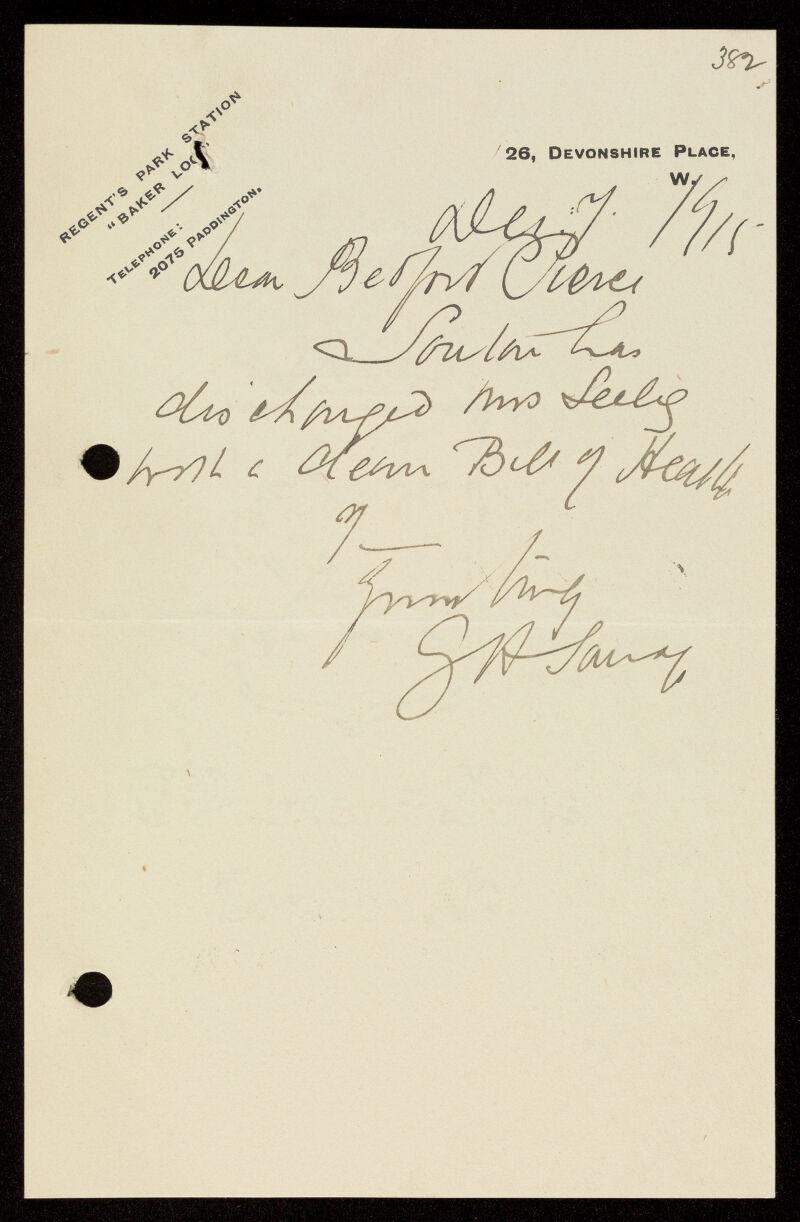 382
REGENT'S PARK STATION
"BAKER LOO"
TELEPHONE:
2075 PADDINGTON.
26, DEVONSHIRE PLACE,
W.
Dec. 7. 1915
Dear Bedford Pierce
has
discharged Mrs
with a clean Bill of Health
Yours truly
G H Savage